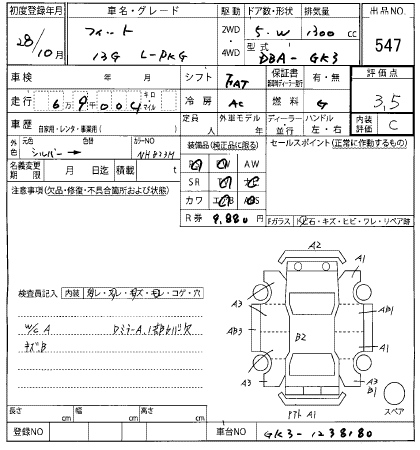 初度登録年月 車名・グレード 駆動 ドア数・形状 排気量 出品NO.
28/10月 フィット 13G L-PKG 2WD・4WD 5.W 1300cc 547
型式 DBA-GK3
車検 年 月 シフト FAT 保証書 有・無 評価点
走行 6万9千004 キロ マイル 冷房 AC 燃料 G 3,5
車歴 自家用・レンタ・事業用( ) 定員 外車モデル 年 ディーラー・並行 ハンドル 左・右 内装評価 C
外色 元色 シルバー→ 色替 カラーNO NH823M 装備品(純正品に限る) セールスポイント(正常に作動するもの)
名義変更期限 月 日迄 積載 t PS PW AW
SR
注意事項(欠品・修復・不具合箇所および状態) カワ
R券 9.880円 Fガラス トビ石・キズ・ヒビ・ワレ・リペア跡
A2
A1
検査員記入 内装 コゲ・穴 A3
W/C A AB3 B2 AB1
キズB A1
A3 A3
A3 B1
リアト A1 スペア
長さ cm 幅 cm 高さ cm
登録NO 車台NO GK3-1238180